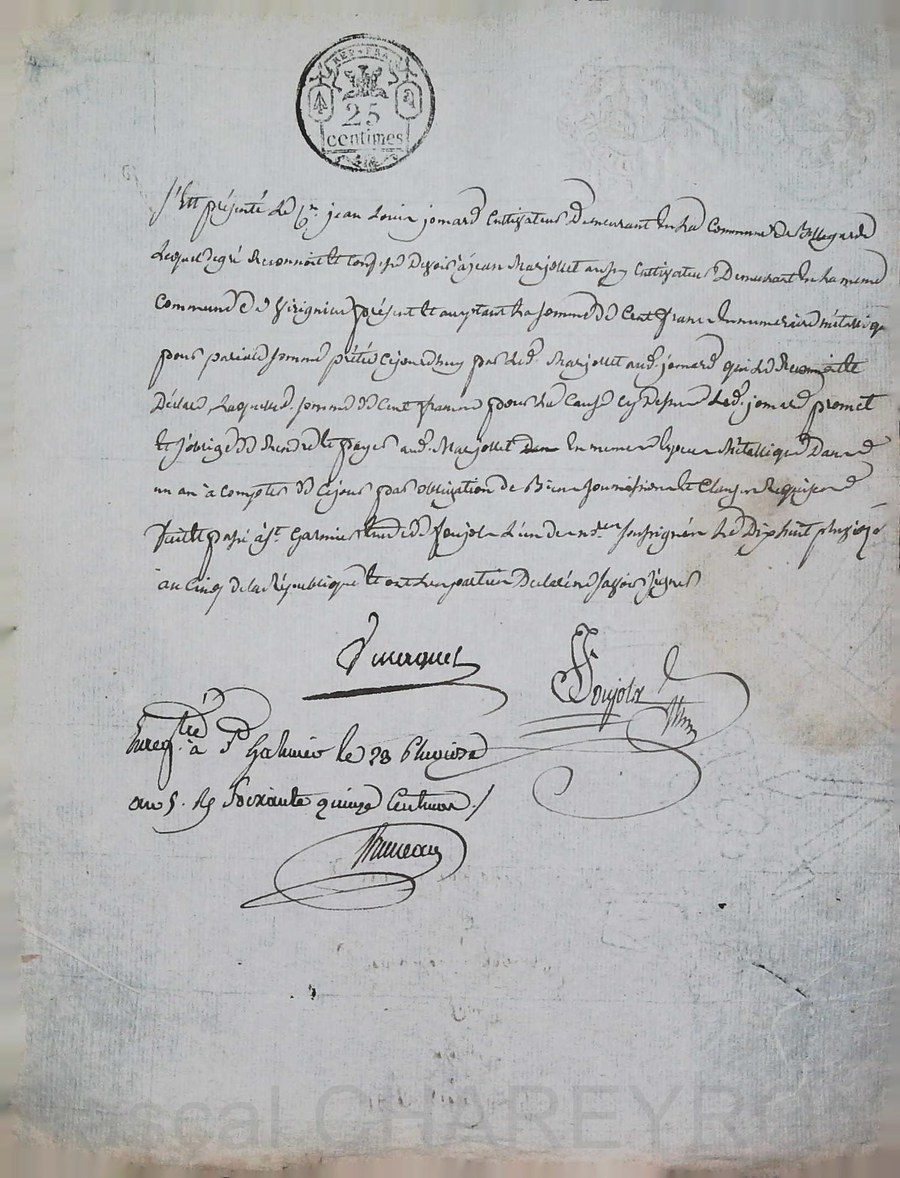 REP. FRA.
25
centimes
S'Est présenté Le Cn. jean Louis jomard Cultivateur Demeurant En La Commune De Bellegarde
Lequel de gré Reconnoit et Confesse Devoir à jean Marjollet aussy Cultivateur Demeurant En La meme
Commune De présent et acceptant La somme De Cent francs En numeraire métallique
pour pareille somme prétée Cejourdhuy par Led. Marjollet aud. jomard qui Le Reconnoit et
Déclare Laquelle d. somme De Cent francs pour La Cause Cy Dessus Led. jomard promet
et s'oblige De Rendre et payer aud. Marjollet En meme Espece Métallique Dans
un an à Compter De Cejour par obligation de Biens soumissions et Clauses Requises
Fait et passé à St. Garmier Etude De Poujols L'un des nres. soussignés Le Dix huit pluviose
an Cinq de la République et ont Les parties Déclaré ne savoir signer
Poujols
Enregtré à St Galmier le 28 Pluviose
an 5. R Soixante quinze Centimes /
Bruneau
Pascal CHAREYRON